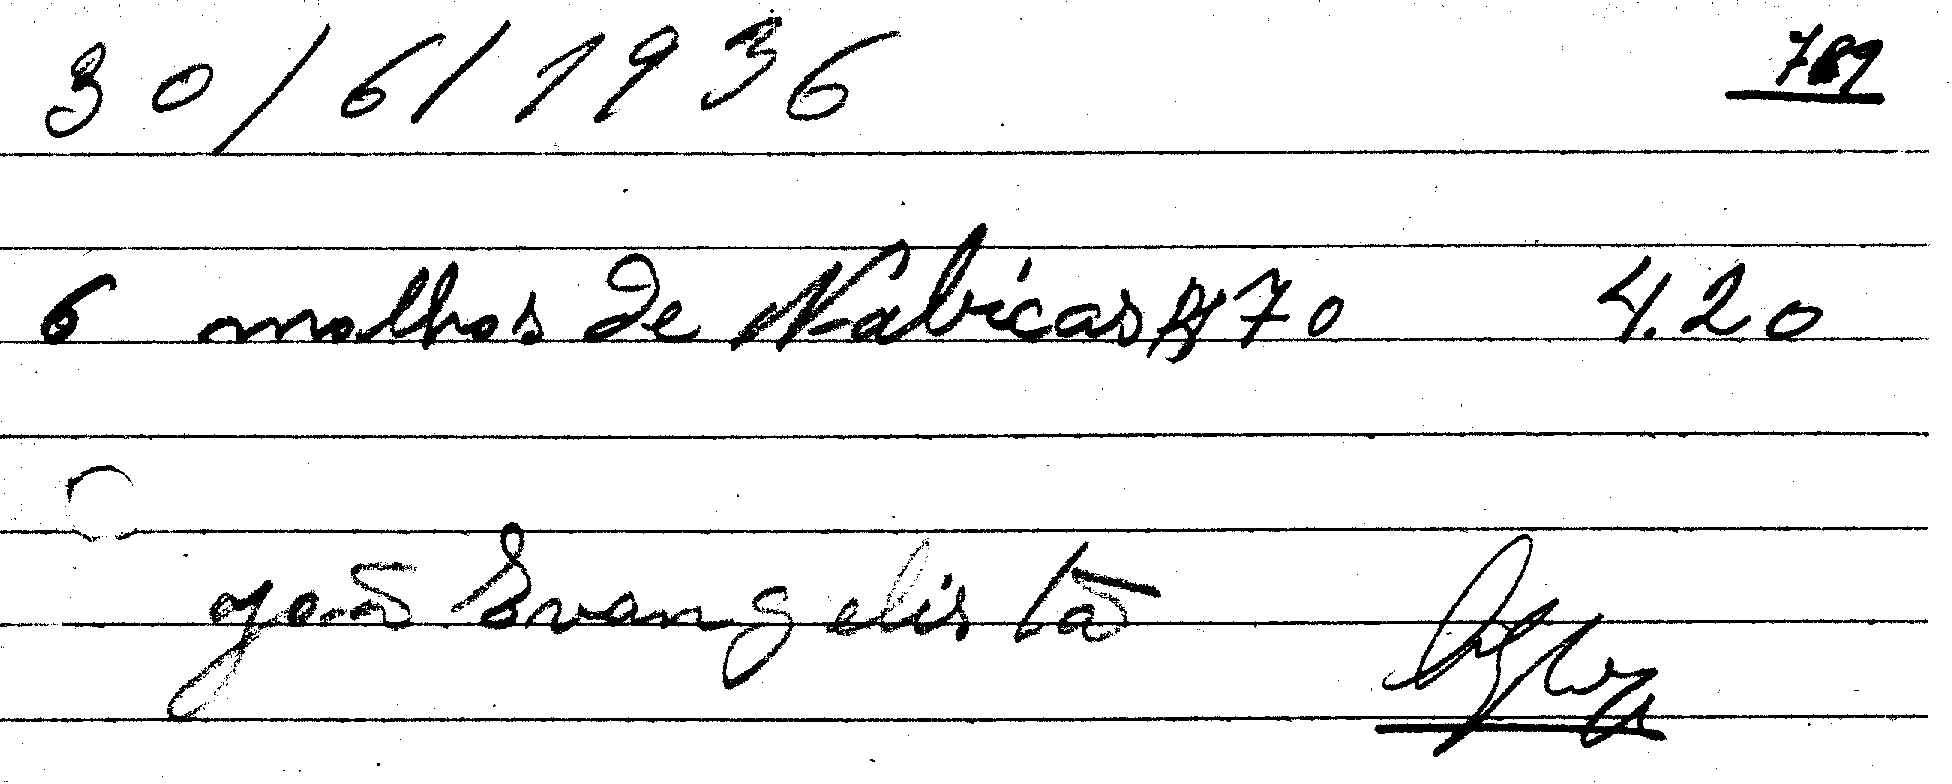 30/6/1936 789
6 molhos de Nabicas $70 4.20
João Evangelista